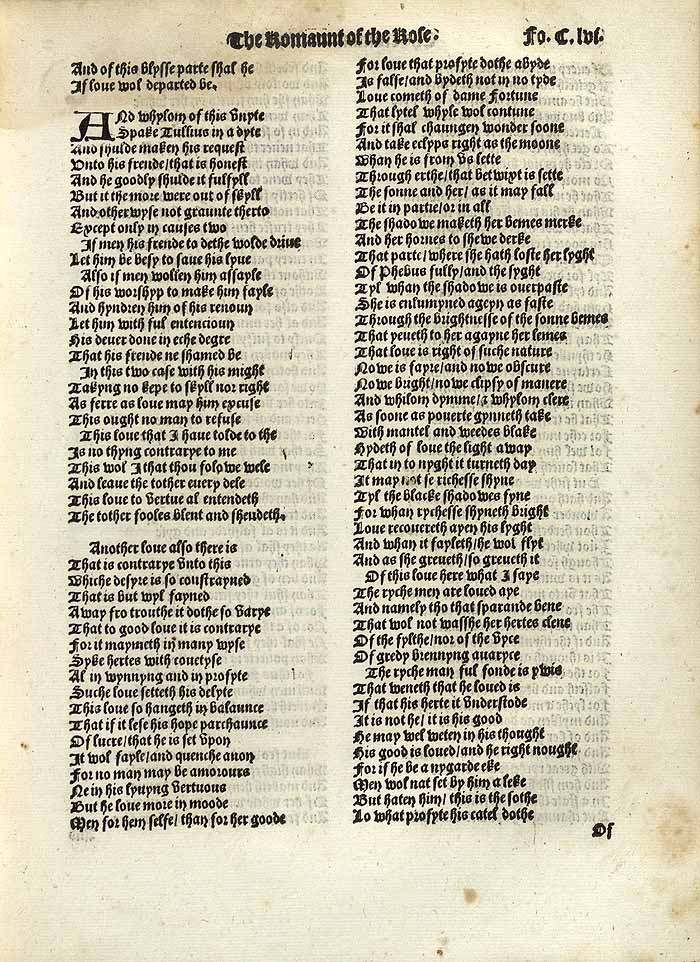 The Romaunt of the Rose. Fo. C. lvi.
And of this blysse parte shal he
If loue wol departed be.
ANd whylom of this vnyte
Spake Tullius in a dyte
And shulde maken his request
Vnto his frende/that is honest
And he goodly shulde it fulfyll
But it the more were out of skyll
And otherwyse not graunte therto
Except only in causes two
If men his frende to dethe wolde driue
Let him be besy to saue his lyue
Also if men wollen him assayle
Of his worshyp to make him fayle
And hyndren him of his renoun
Let him with ful entencioun
His deuer done in eche degre
That his frende ne shamed be
In this two case with his might
Takyng no kepe to skyll nor right
As ferre as loue may him excuse
This ought no man to refuse
This loue that I haue tolde to the
Is no thyng contrarye to me
This wol I that thou folowe wele
And leaue the tother euery dele
This loue to vertue al entendeth
The tother fooles blent and shendeth.
Another loue also there is
That is contrarye vnto this
Whiche desyre is so constrayned
That is but wyl fayned
Away fro trouthe it dothe so varye
That to good loue it is contrarye
For it maymeth in many wyse
Syke hertes with couetyse
Al in wynnyng and in profyte
Suche loue setteth his delyte
This loue so hangeth in balaunce
That if it lese his hope parchaunce
Of lucre/that he is set vpon
It wol fayle/and quenche anon
For no man may be amorours
Ne in his lyuyng vertuous
But he loue more in moode
Men for hem selfe/than for her goode
For loue that profyte dothe abyde
Is false/and bydeth not in no tyde
Loue cometh of dame Fortune
That lytel whyle wol contune
For it shal chaungen wonder soone
And take eclyps right as the moone
Whan he is from vs lette
Through erthe/that betwixt is sette
The sonne and her/as it may fall
Be it in partie/or in all
The shadowe maketh her bemes merke
And her hornes to shewe derke
That parte/where she hath loste her lyght
Of Phebus fully/and the syght
Tyl whan the shadowe is ouerpaste
She is enlumyned ageyn as faste
Through the brightnesse of the sonne bemes
That yeueth to her agayne her lemes
That loue is right of suche nature
Nowe is fayre/and nowe obscure
Nowe bright/nowe clipsy of manere
And whilom dymme/& whylom clere
As soone as pouerte gynneth take
With mantel and weedes blake
Hydeth of loue the light away
That in to nyght it turneth day
It may not se richesse shyne
Tyl the blacke shadowes fyne
For whan rychesse shyneth bright
Loue recouereth ayen his lyght
And whan it fayleth/he wol flyt
And as she greueth/so greueth it
Of this loue here what I saye
The ryche men are loued aye
And namely tho that sparande bene
That wol not wasshe her hertes clene
Of the fylthe/nor of the vyce
Of gredy brennyng auaryce
The ryche man ful fonde is ywis
That weneth that he loued is
If that his herte it vnderstode
It is not he/it is his good
He may wel weten in his thought
His good is loued/and he right nought
For if he be a nygarde eke
Men wol nat set by him a leke
But haten him/this is the sothe
Lo what profyte his catel dothe
Of